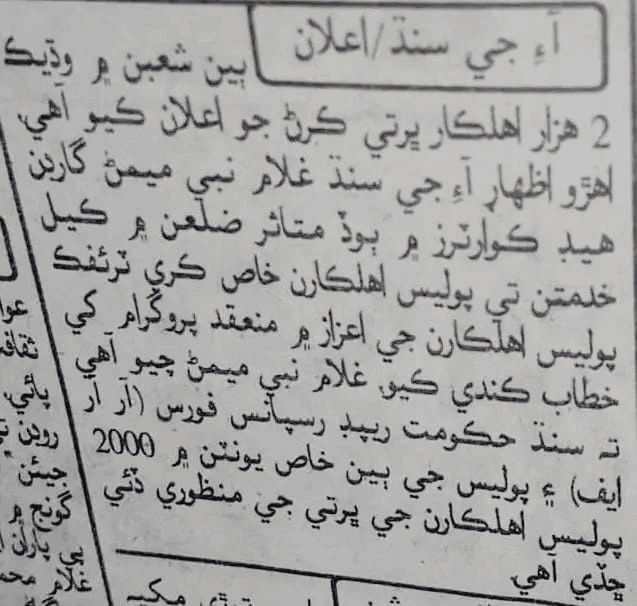 آءِ جي سنڌ/اعلان
ٻين شعبن ۾ وڌيڪ
2 هزار اهلڪار ڀرتي ڪرڻ جو اعلان ڪيو آهي.
اهڙو اظهار آءِ جي سنڌ غلام نبي ميمڻ گارڊن
هيڊ ڪوارٽرز ۾ ٻوڏ متاثر ضلعن ۾ ڪيل
خدمتن تي پوليس اهلڪارن خاص ڪري ٽرئفڪ
پوليس اهلڪارن جي اعزاز ۾ منعقد پروگرام کي
خطاب ڪندي ڪيو. غلام نبي ميمڻ چيو آهي
ته سنڌ حڪومت ريپڊ رسپانس فورس (آر آر
ايف) ۽ پوليس جي ٻين خاص يونٽن ۾ 2000
پوليس اهلڪارن جي ڀرتي جي منظوري ڏئي
ڇڏي آهي.
پائي.
جيئن
گونج ۾